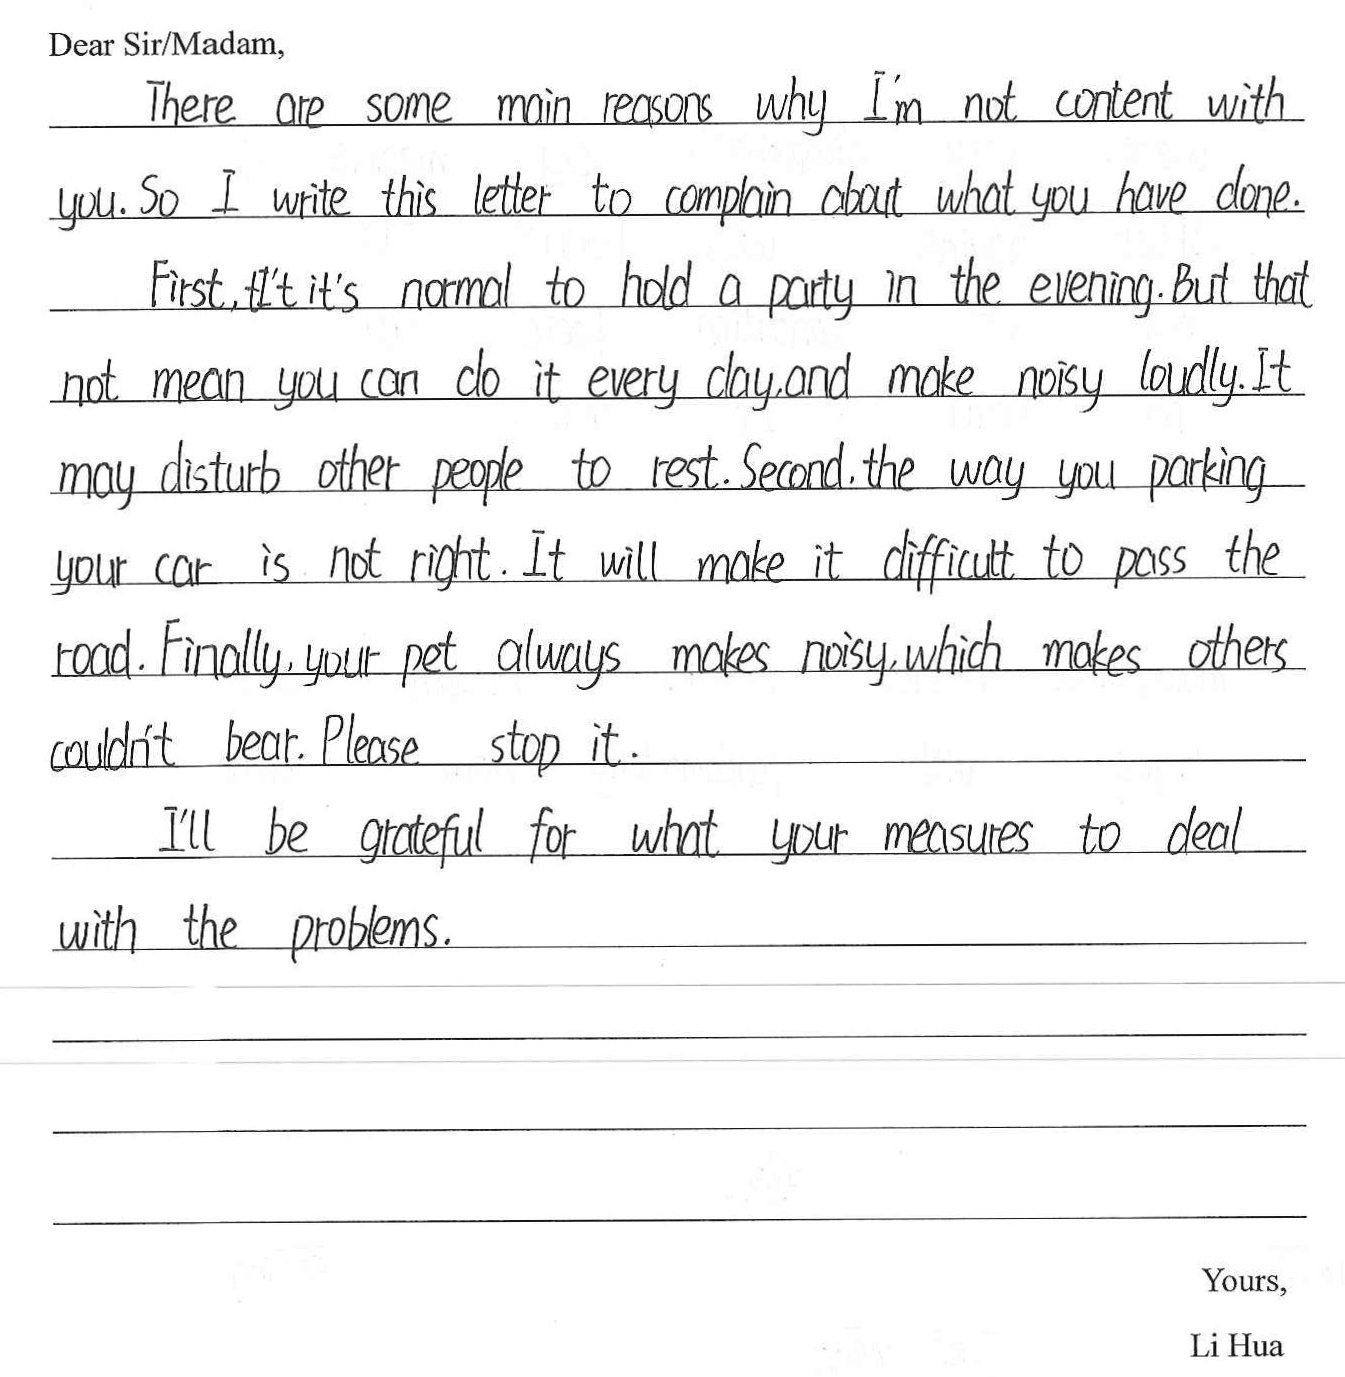 Dear Sir/Madam,
There are some main reasons why I'm not content with
you. So I write this letter to complain about what you have done.
First, it's normal to hold a party in the evening. But that
not mean you can do it every day, and make noisy loudly. It
may disturb other people to rest. Second, the way you parking
your car is not right. It will make it difficult to pass the
road. Finally, your pet always makes noisy, which makes others
couldn't bear. Please stop it.
I'll be grateful for what your measures to deal
with the problems.
Yours,
Li Hua